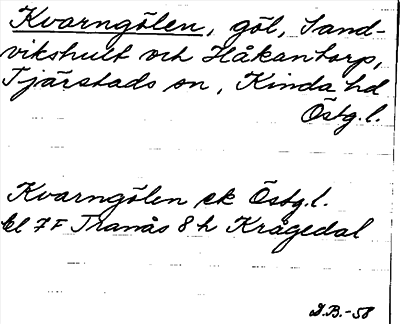 Kvarngölen, göl, Sand-
vikshult och Håkantorp,
Tjärstads sn, Kinda hd
Östg.l.
Kvarngölen ek Östg.l.
bl 7F Tranås 8h Krågedal
D.B.-58